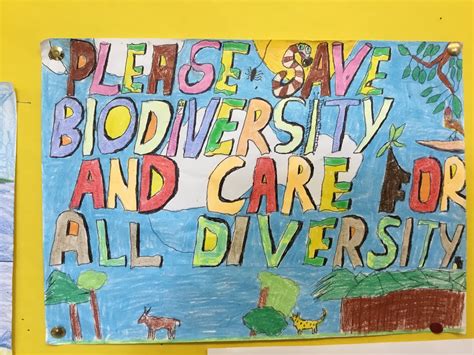 PLEASE SAVE
BIODIVERSITY
AND CARE FOR
ALL DIVERSITY.